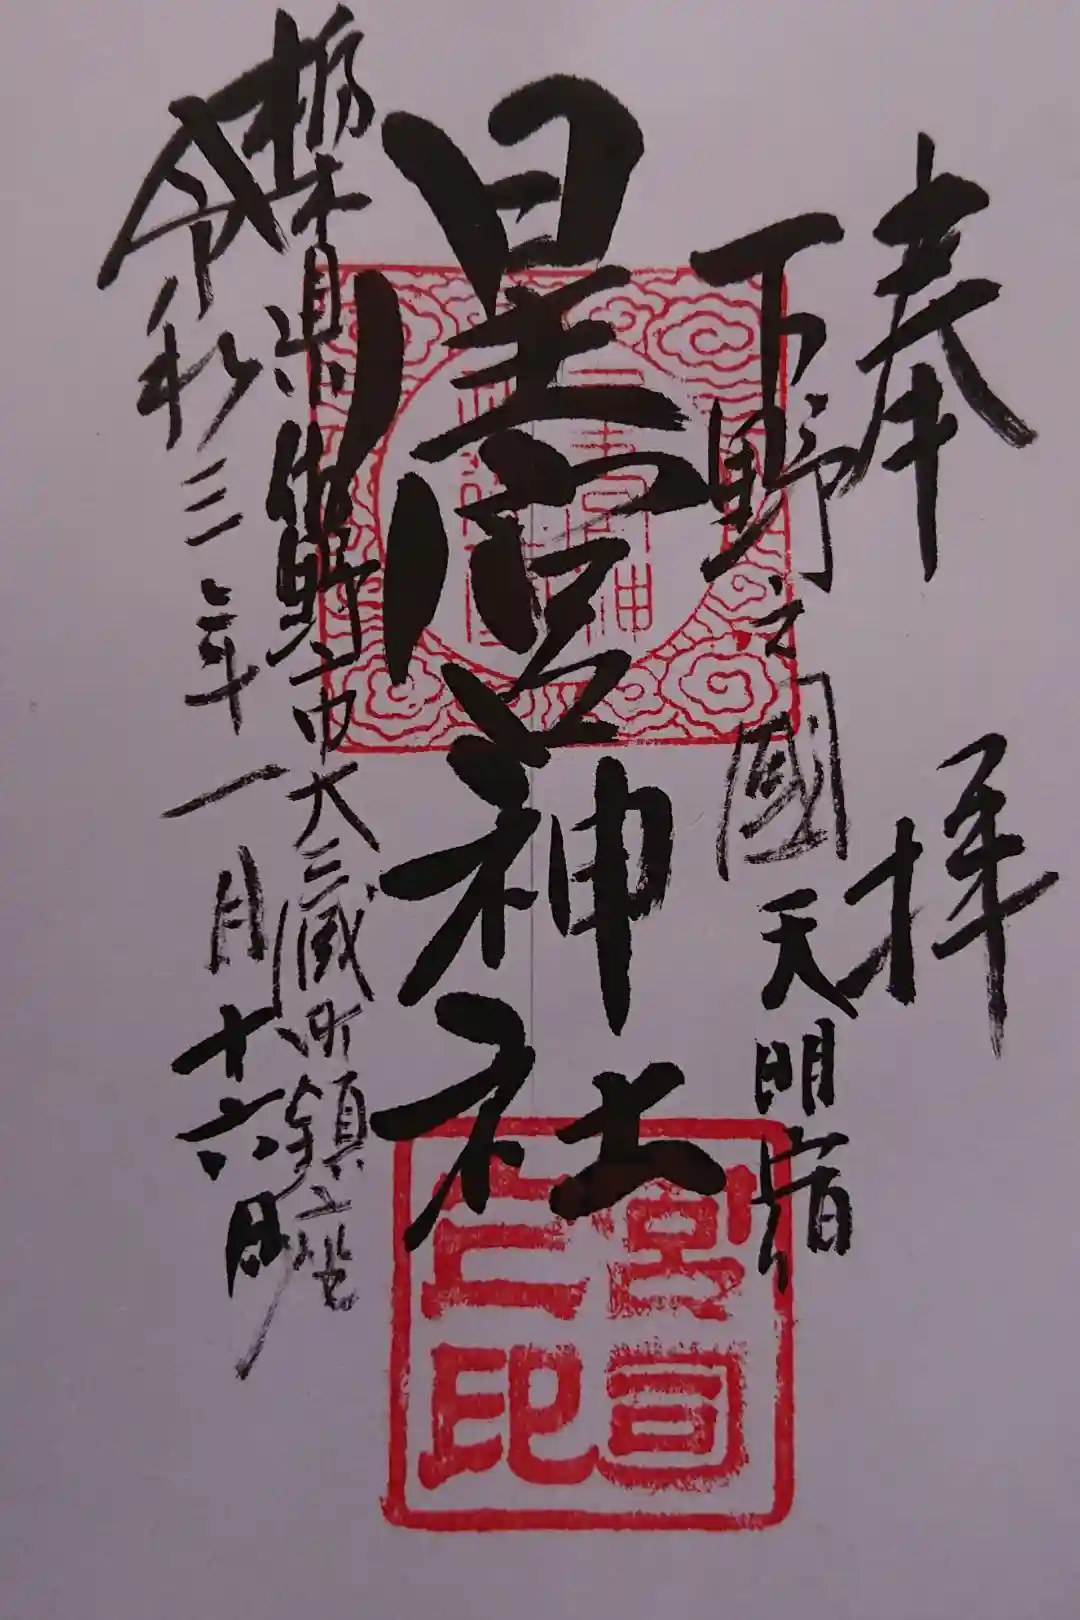 奉拝
下野之國天明宿
星宮神社
栃木県佐野市大蔵町鎮座
令和三年一月十六日
宮司
之印